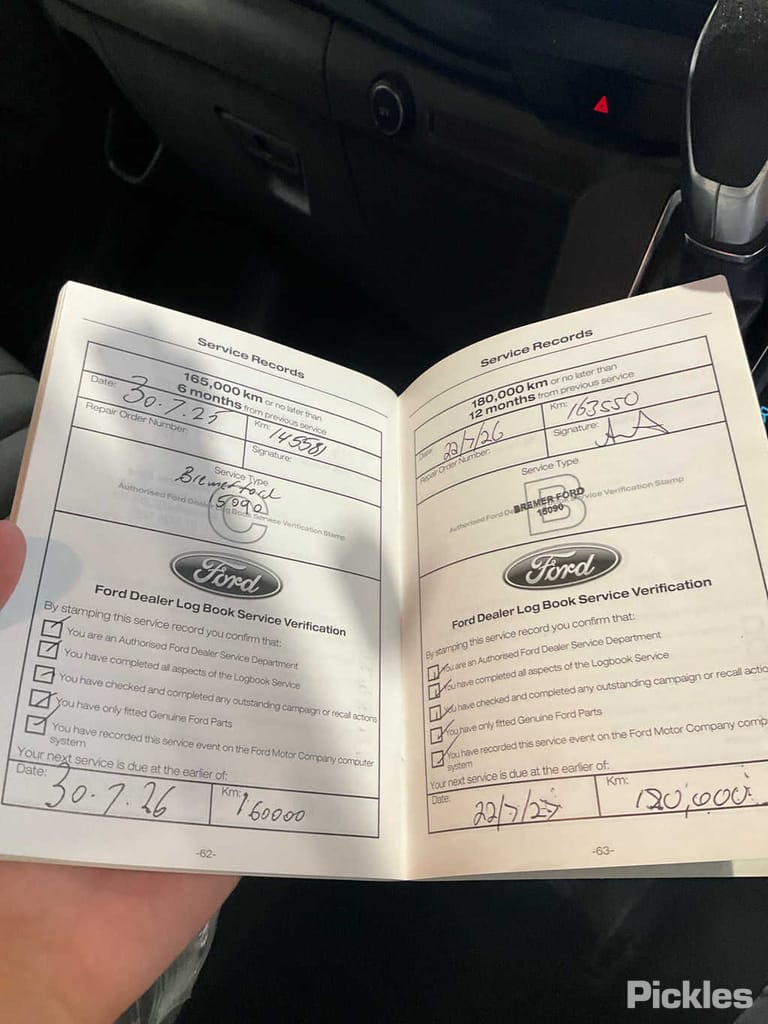 Service Records
165,000 km or no later than
6 months from previous service
Date: 30.7.25
Km: 145581
Repair Order Number:
Signature:
Service Type
C
Bremer Ford
15090
Authorised Ford Dealer Log Book Service Verification Stamp
Ford
Ford Dealer Log Book Service Verification
By stamping this service record you confirm that:
You are an Authorised Ford Dealer Service Department
You have completed all aspects of the Logbook Service
You have checked and completed any outstanding campaign or recall actions
You have only fitted Genuine Ford Parts
You have recorded this service event on the Ford Motor Company computer
system
Your next service is due at the earlier of:
Date: 30.7.26
Km: 160000
-62-
Service Records
180,000 km or no later than
12 months from previous service
Date: 22/7/26
Km: 163550
Repair Order Number:
Signature:
Service Type
B
BREMER FORD
15090
Authorised Ford Service Verification Stamp
Ford
Ford Dealer Log Book Service Verification
By stamping this service record you confirm that:
You are an Authorised Ford Dealer Service Department
You have completed all aspects of the Logbook Service
You have checked and completed any outstanding campaign or recall actio
You have only fitted Genuine Ford Parts
You have recorded this service event on the Ford Motor Company comp
system
Your next service is due at the earlier of:
Date: 22/7/27
Km: 180,000
-63-
Pickles